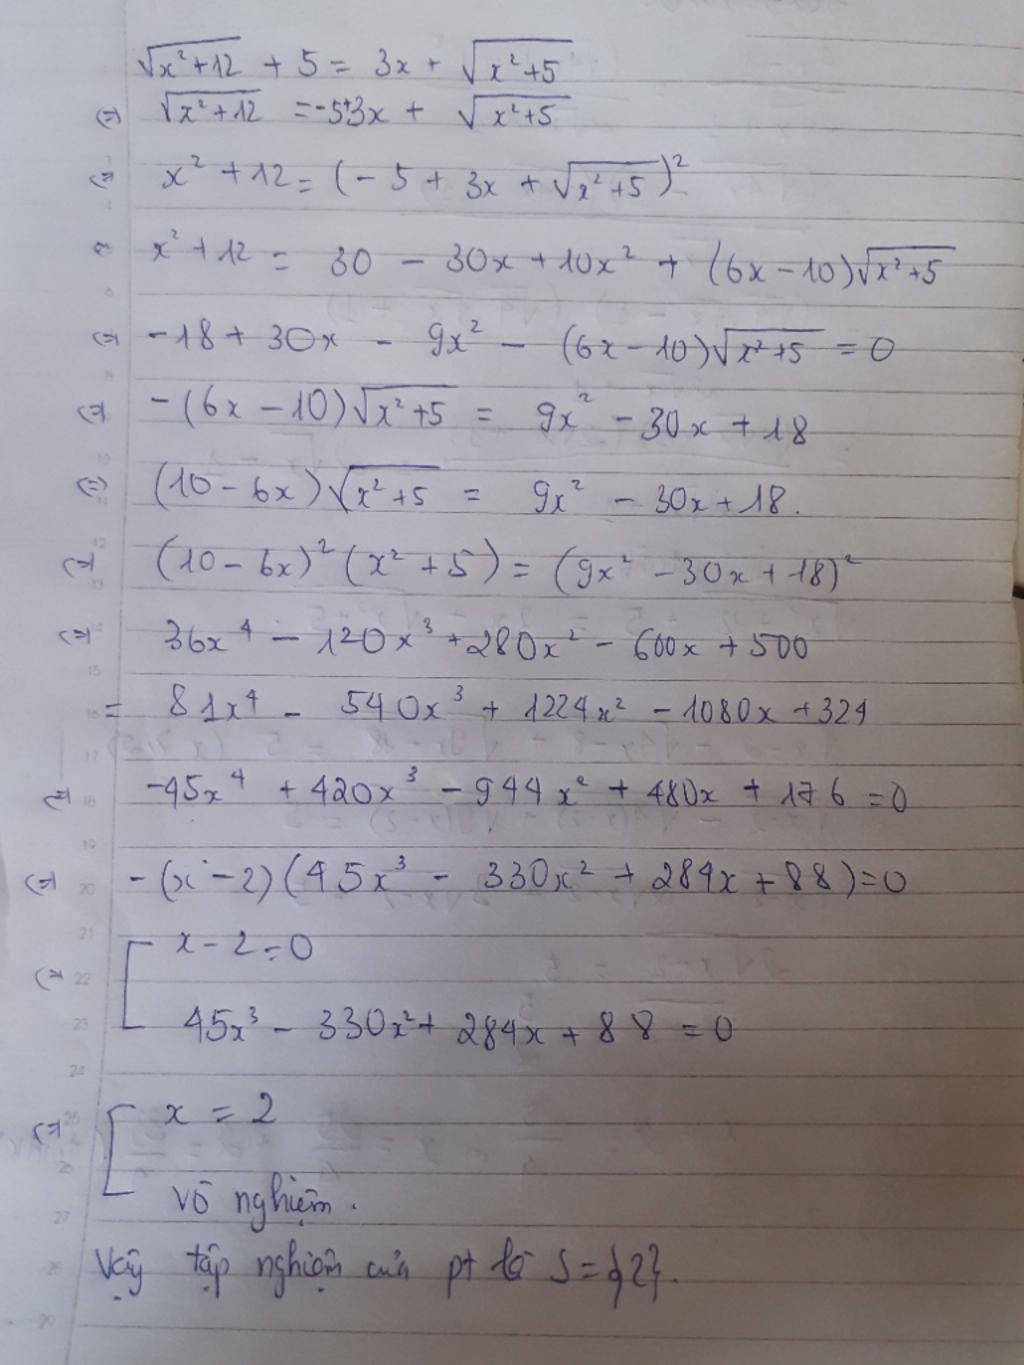 √(x²+12) + 5 = 3x + √(x²+5)
(=) √(x²+12) = -5+3x + √(x²+5)
(=) x² + 12 = (-5 + 3x + √(x²+5))²
(=) x² + 12 = 30 - 30x + 10x² + (6x - 10)√(x²+5)
(=) -18 + 30x - 9x² - (6x - 10)√(x²+5) = 0
(=) -(6x - 10)√(x²+5) = 9x² - 30x + 18
(=) (10 - 6x)√(x²+5) = 9x² - 30x + 18.
(=) (10 - 6x)² (x² + 5) = (9x² - 30x + 18)²
(=) 36x⁴ - 120x³ + 280x² - 600x + 500
= 81x⁴ - 540x³ + 1224x² - 1080x + 324
(=) -45x⁴ + 420x³ - 944x² + 480x + 176 = 0
(=) -(x - 2)(45x³ - 330x² + 284x + 88) = 0
(=) [ x - 2 = 0
45x³ - 330x² + 284x + 88 = 0
(=) [ x = 2
vô nghiệm.
Vậy tập nghiệm của pt là S = {2}.